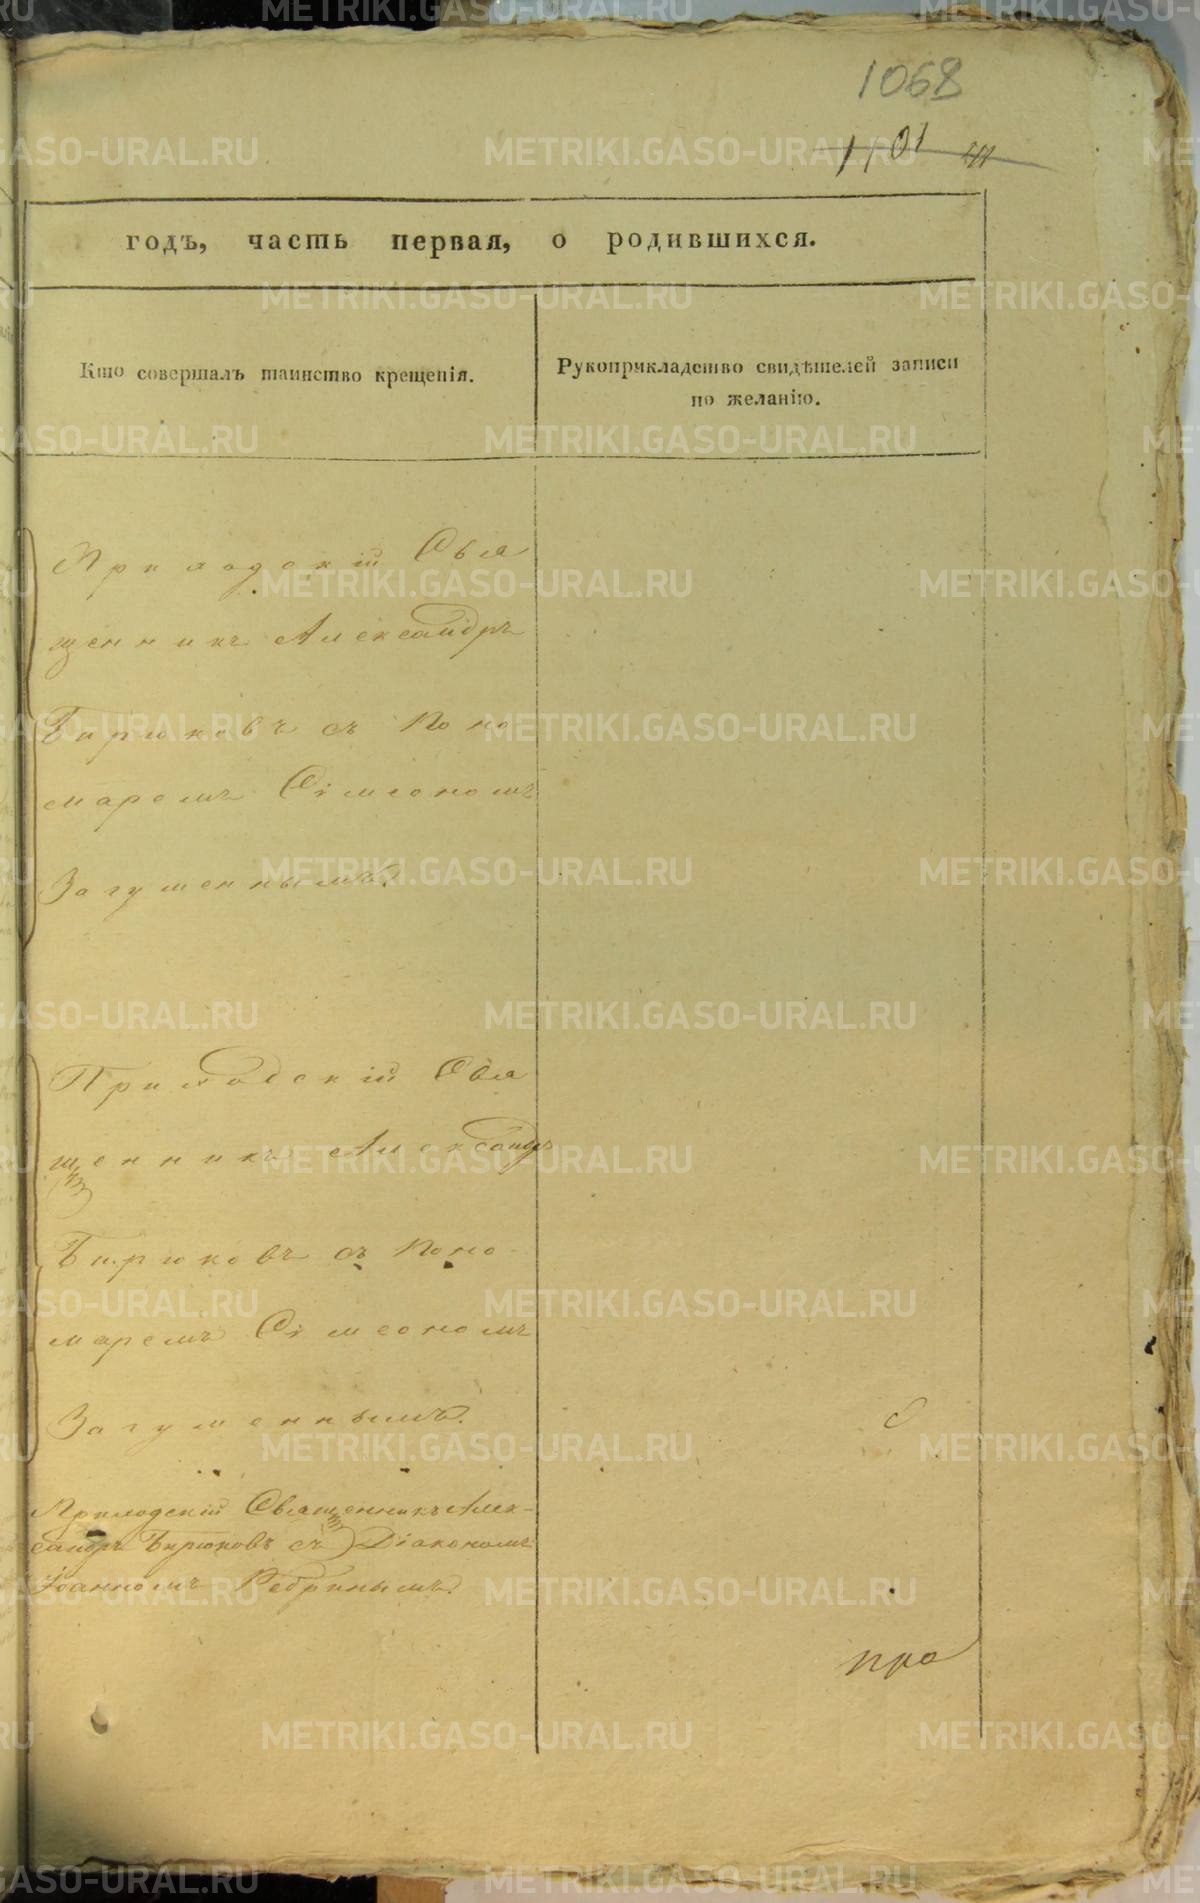 1068
1101
годъ, часть первая, о родившихся.
Кто совершалъ таинство крещенія.
Рукоприкладство свидѣтелей записи
по желанію.
Приходскій Свя
щенникъ Александръ
Бирюковъ съ Поно
маремъ Сімеономъ
Загуменнымъ.
Приходскій Свя
щенникъ Александръ
Бирюковъ съ Поно-
маремъ Сімеономъ
Загуменнымъ.
Приходскій Священникъ Алек-
сандръ Бирюковъ съ Діакономъ
Іоанномъ Ребринымъ.
METRIKI.GASO-URAL.RU